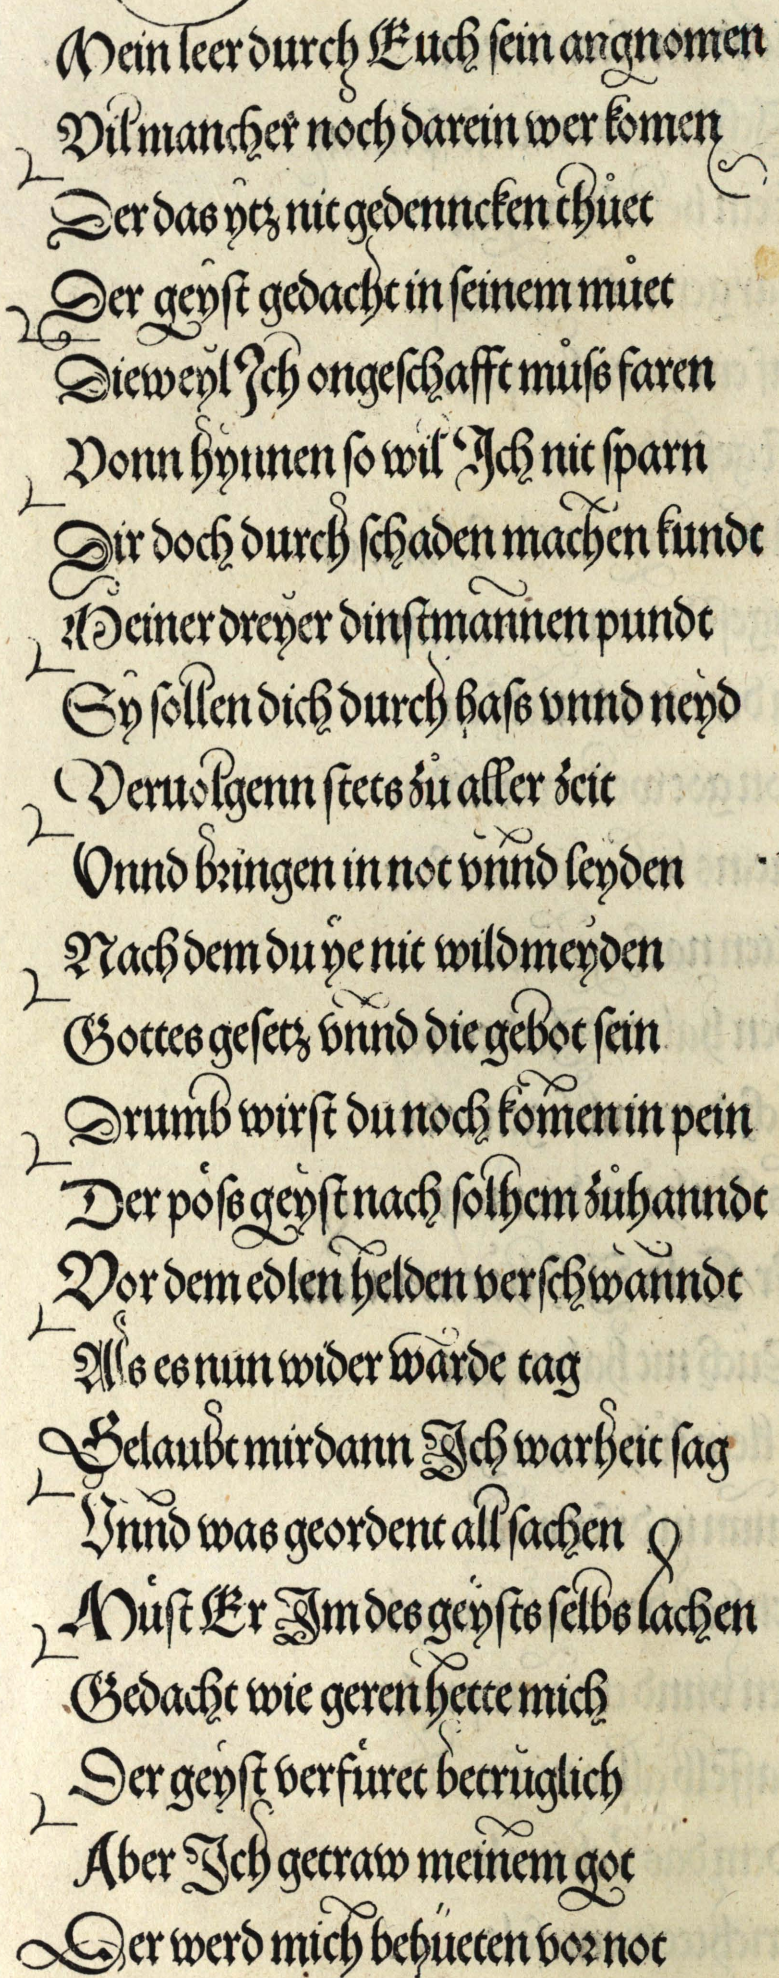 Mein leer durch Euch sein angnomen
Vil mancher noch darein wer komen
Der das ytz nit gedenncken thůet
Der geyst gedacht in seinem můet
Dieweyl Ich ongeschafft můſs faren
Vonn hynnen so wil Ich nit sparn
Dir doch durch schaden machen kundt
Meiner dreyer dinstmannen pundt
Sy sollen dich durch haſs vnnd neyd
Veruolgenn stets zů aller zeit
Vnnd bringen in not vnnd leyden
Nach dem du ye nit wild meyden
Gottes gesetz vnnd die gebot sein
Drumb wirst du noch komen in pein
Der pöſs geyst nach solhem zůhanndt
Vor dem edlen helden verschwanndt
Als es nun wider warde tag
Gelaubt mir dann Ich warheit sag
Vnnd was geordent all sachen
Můst Er Im des geysts selbs lachen
Gedacht wie geren hette mich
Der geyst verfüret betruglich
Aber Ich getraw meinem got
Der werd mich behüeten vor not